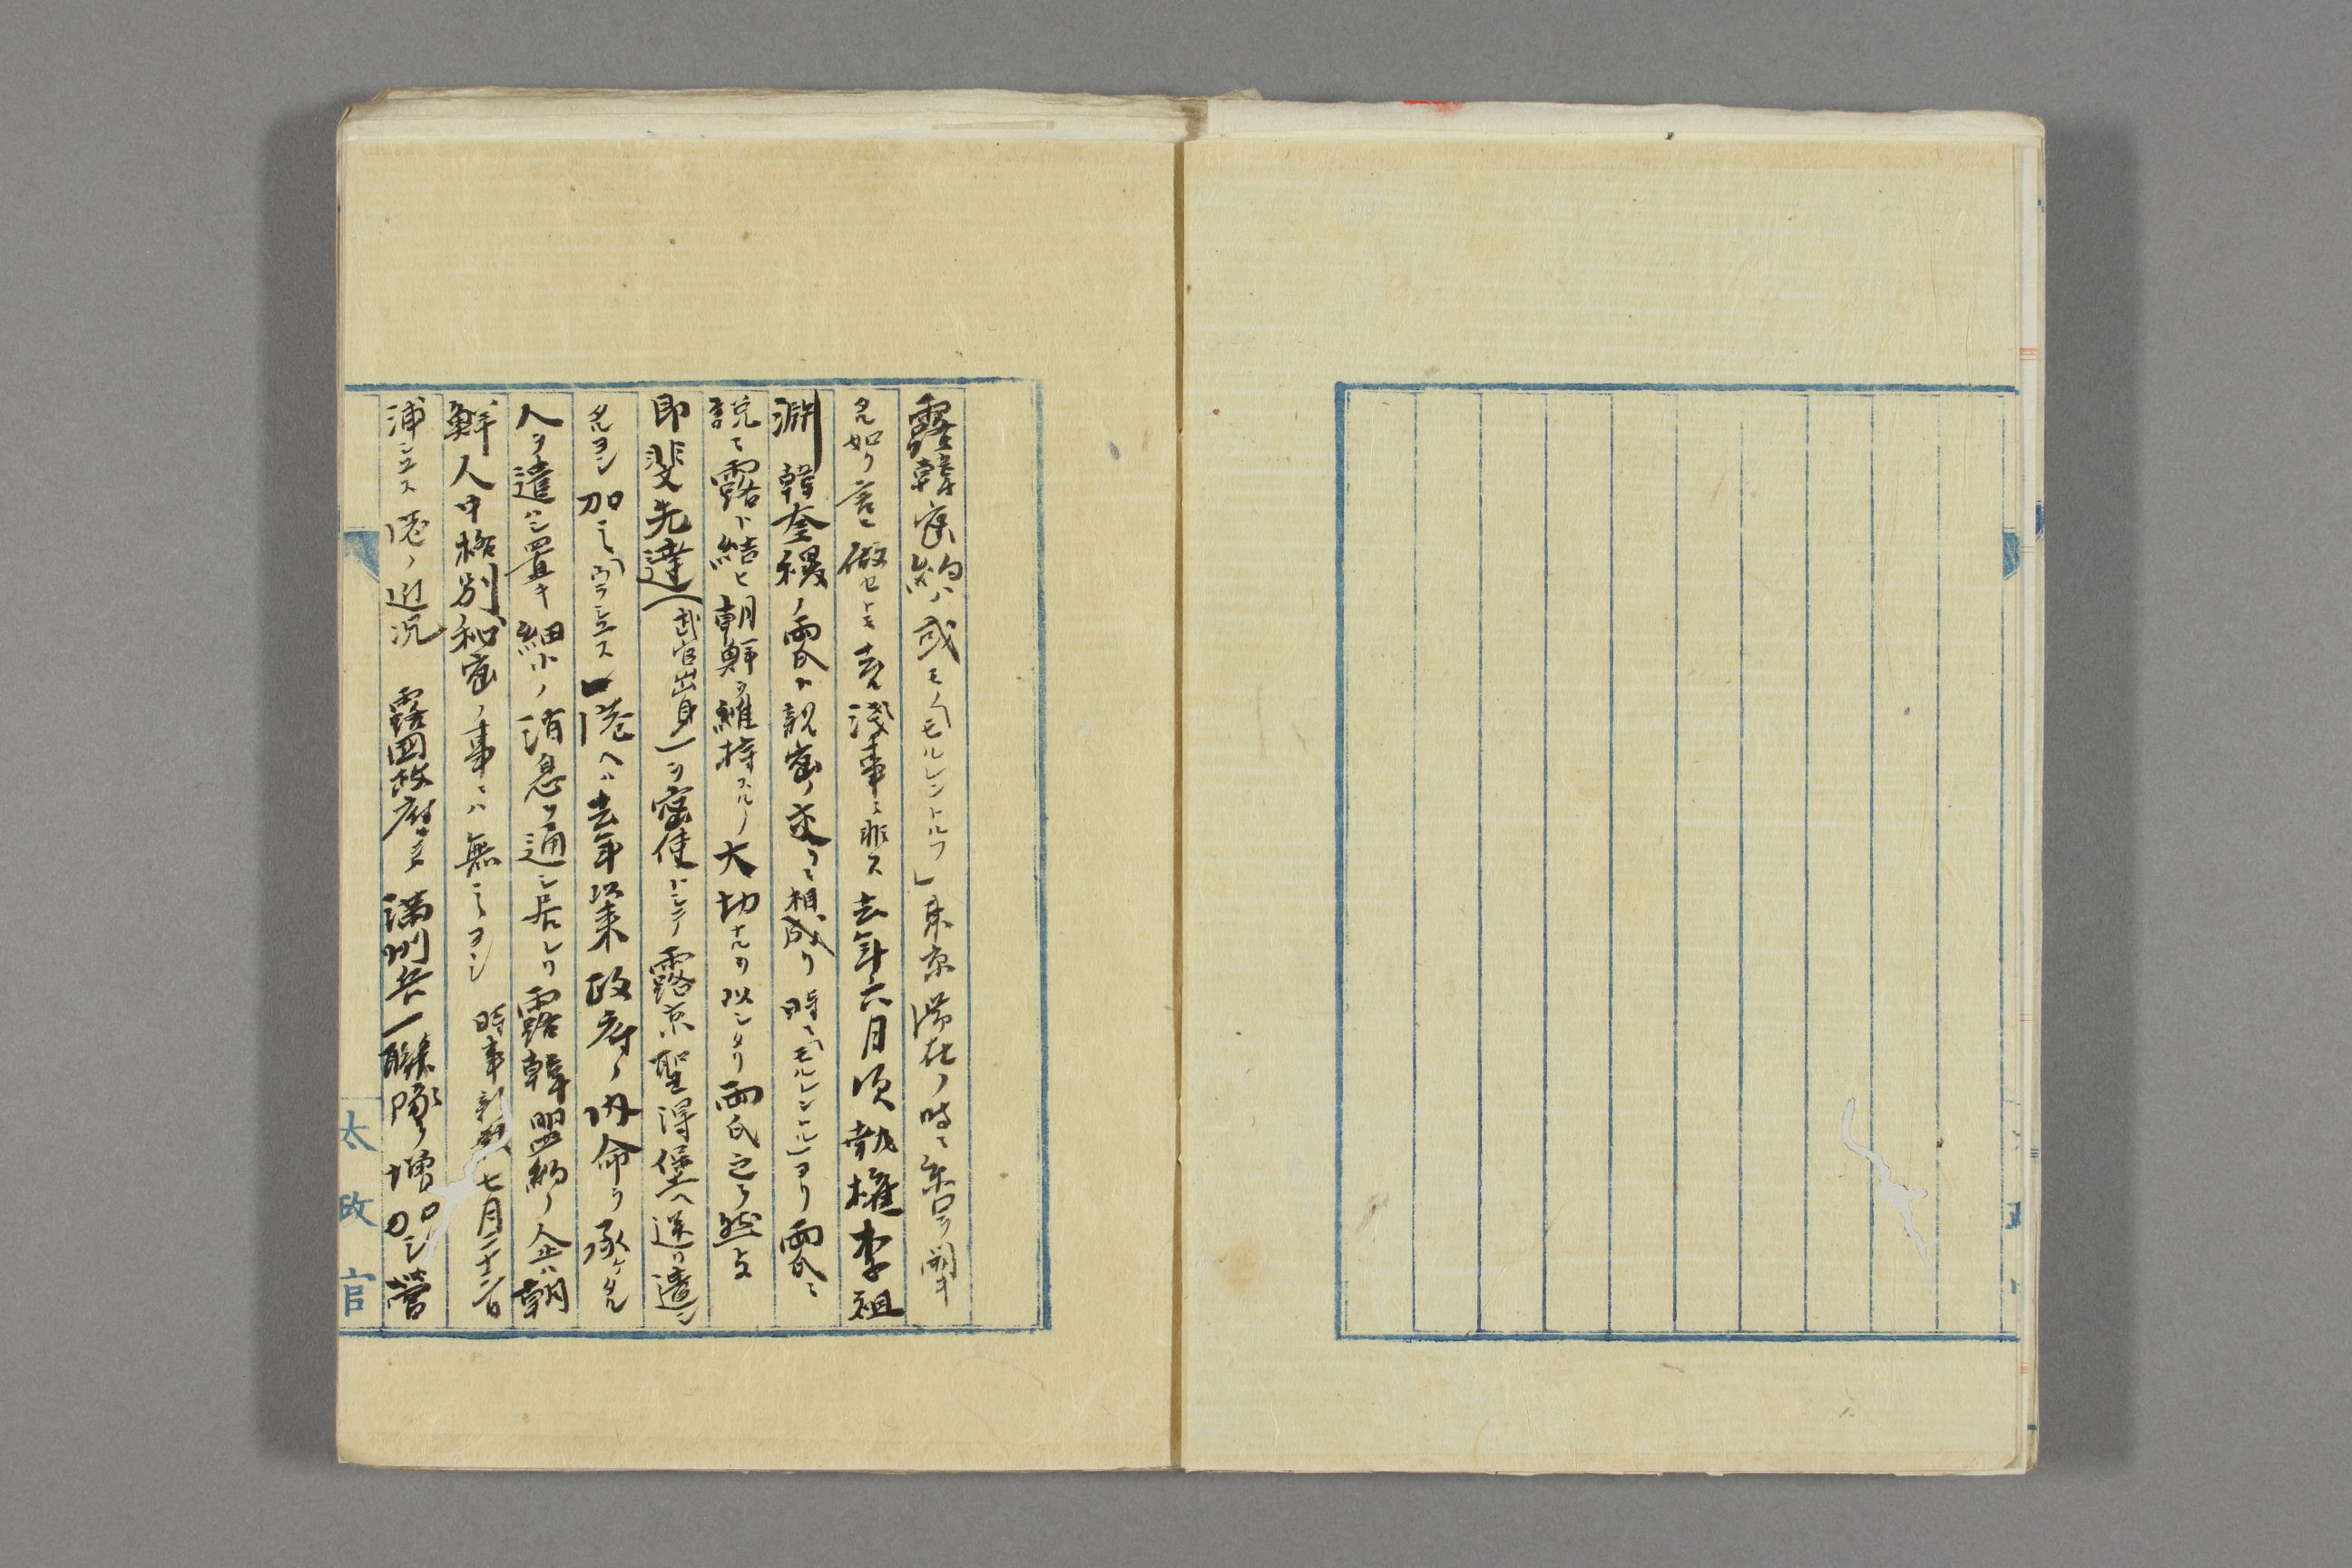 露韓密約ハ或モノ「モルレンドルフ」東京滞在ノ時ニ糸口ヲ開キ
タル如ク言ヒ做セトモ夫レ浅事ニ非ス去年六月頃執権李祖
淵韓奎稷ノ両氏ト親密ノ交ニ相成リ時ニ「モルレンドルフ」ヨリ両氏ニ
説テ露ト結ヒ朝鮮ヲ維持スルノ大切ナルヲ以シタリ両氏之ヲ然トシ
即斐先達(武官出身)ヲ密使トシテ露京聖得堡ヘ送リ遣シ
タルヨシ加之「ウラシヲス」港ヘハ去年以来政府ノ内命ヲ承ケタル
人ヲ遣ハシ置キ細小ノ消息ヲ通シ居レリ露韓盟約ノ企ハ朝
鮮人中格別秘密ノ事ニハ無之ヨシ 時事新報七月二十二日
浦シヲス港ノ近況 露国政府ハ満州兵一聯隊ヲ増加シ営
太政官